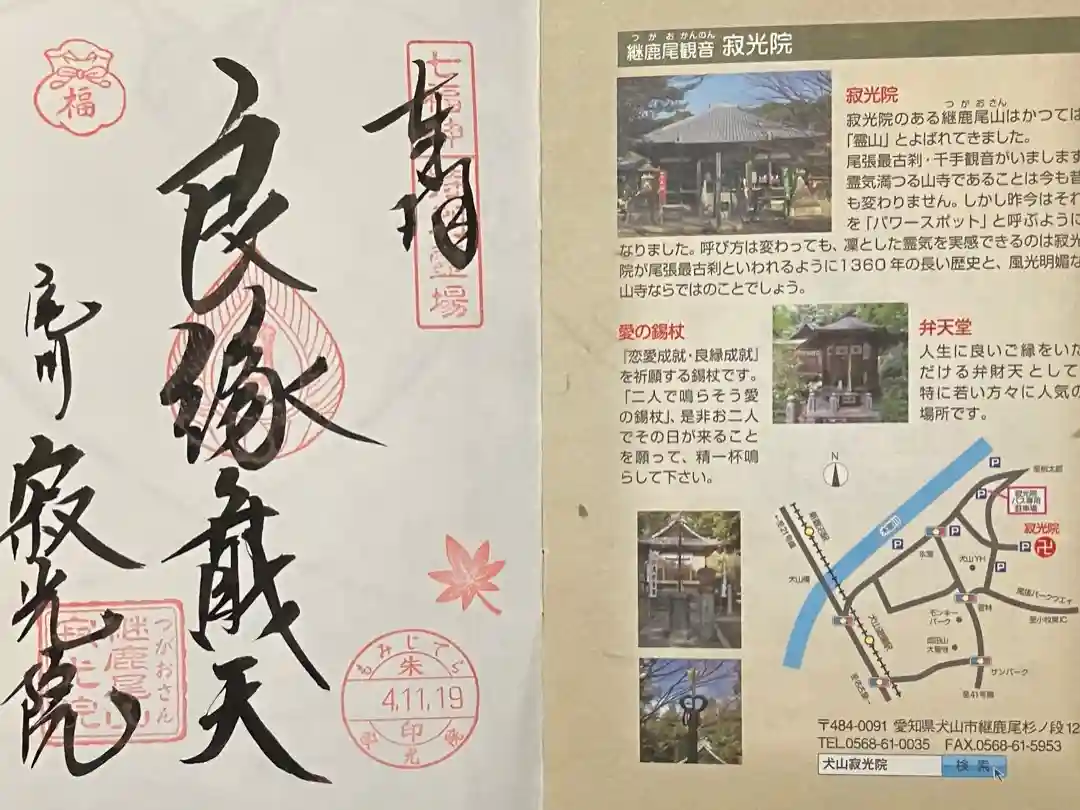 奉拝
七福神
霊場
福
良縁
天
尾州
寂光院
つがおさん
継鹿尾山
寂光院
もみじでら
朱
4.11.19
印
つがおかんのん
継鹿尾観音 寂光院
寂光院
つがおさん
寂光院のある継鹿尾山はかつては
「霊山」とよばれてきました。
尾張最古刹・千手観音がいます
霊気満つる山寺であることは今も昔
も変わりません。しかし昨今はそれ
を「パワースポット」と呼ぶように
なりました。呼び方は変わっても、凜とした霊気を実感できるのは寂光
院が尾張最古刹といわれるように1360年の長い歴史と、風光明媚な
山寺ならではのことでしょう。
愛の錫杖
『恋愛成就・良縁成就』
を祈願する錫杖です。
「二人で鳴らそう愛
の錫杖」、是非お二人
でその日が来ること
を願って、精一杯鳴
らして下さい。
弁天堂
人生に良いご縁をいた
だける弁財天として
特に若い方々に人気の
場所です。
N
P
P
至桃太郎
寂光院
バス専用
駐車場
寂光院
P
P
P
P
犬山YH
犬山橋
尾張パークウェイ
至小牧東IC
モンキー
パーク
成田山
大聖寺
サンパーク
至41号線
〒484-0091 愛知県犬山市継鹿尾杉ノ段12
TEL.0568-61-0035 FAX.0568-61-5953
犬山寂光院 検索